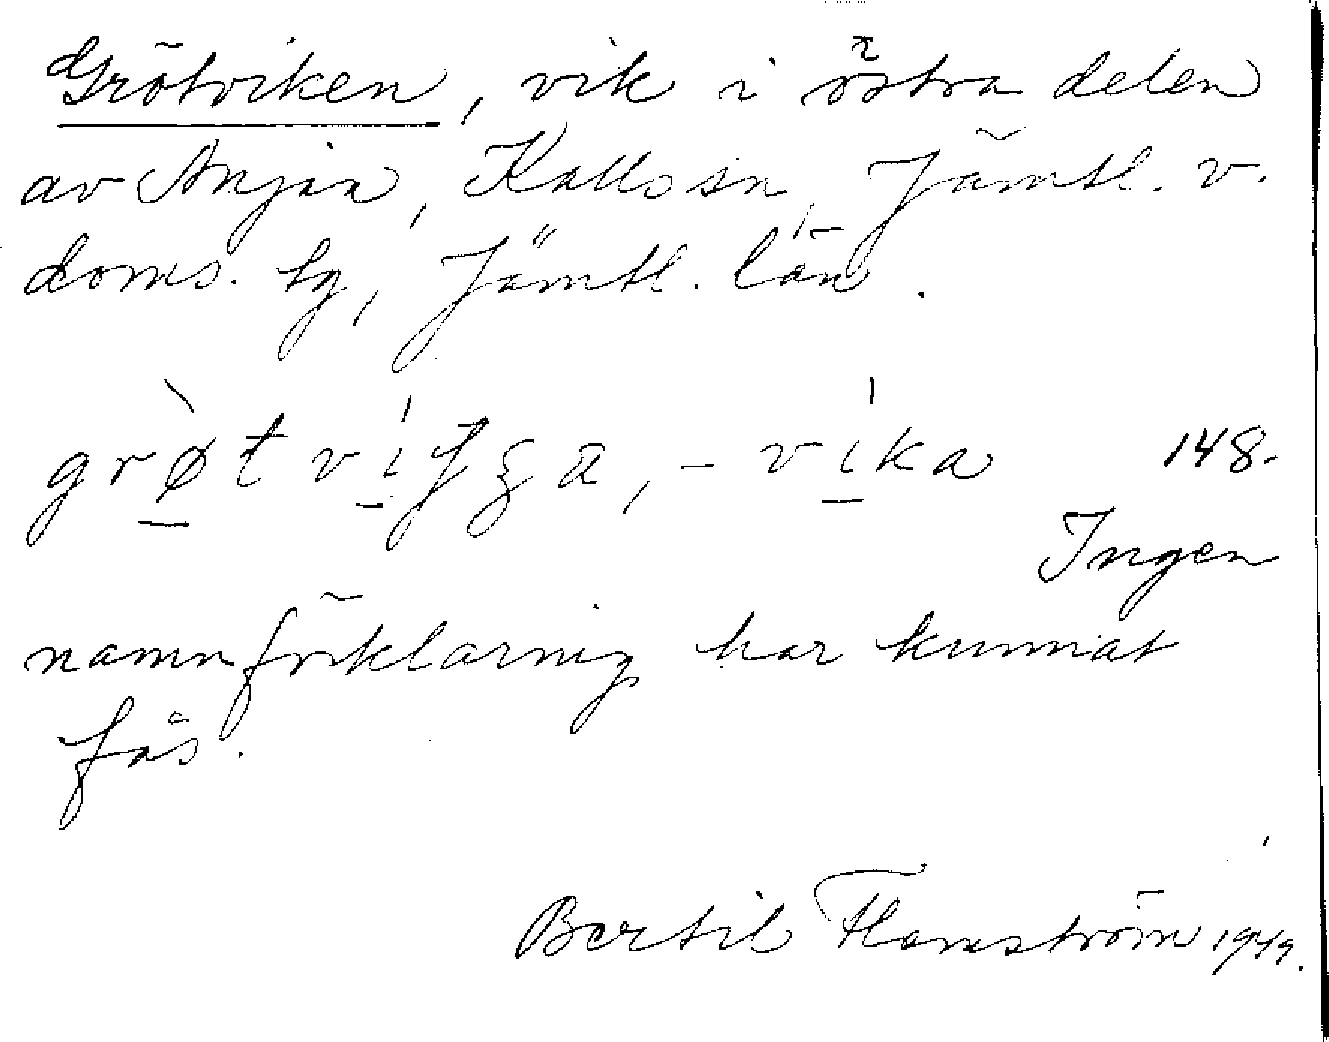 Grötviken, vik i östra delen
av Anjan, Kalls sn, Jämtl. v.
doms. tg, Jämtl. län.
grø̀tvíʃʒa, -víka 148.
Ingen
namnförklaring har kunnat
fås.
Bertil Flemström 1949.